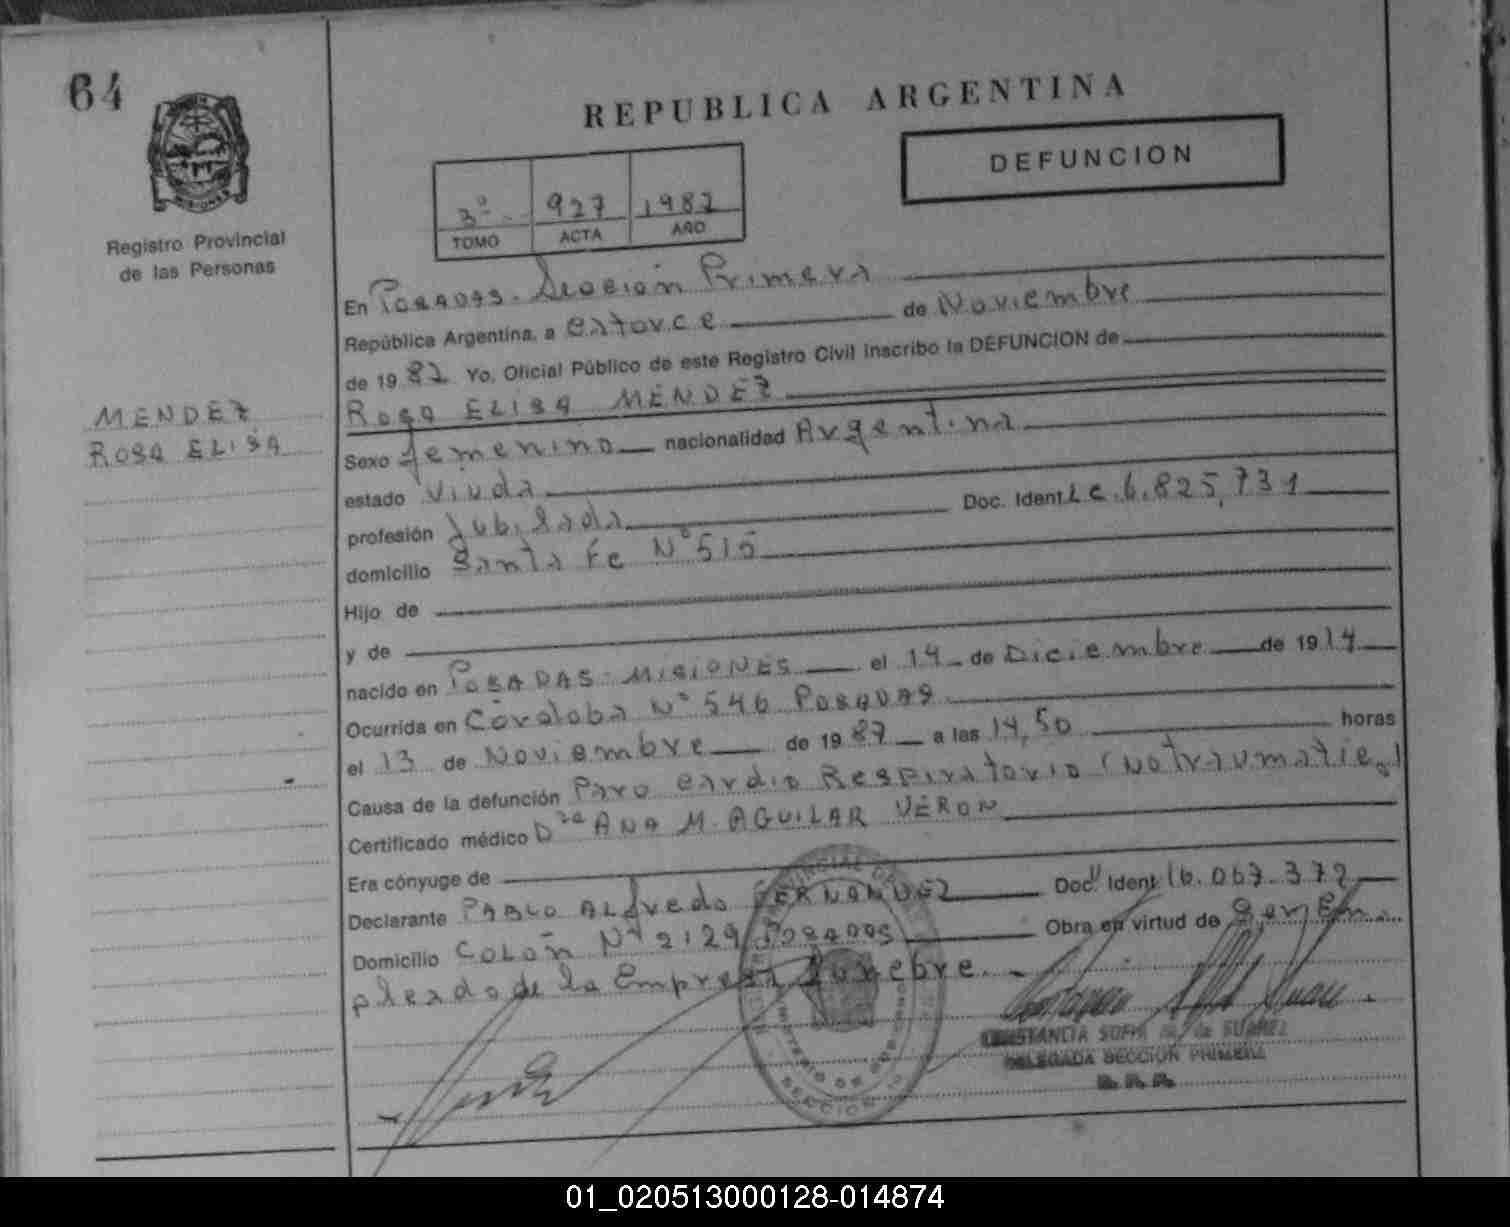 64
REPUBLICA ARGENTINA
DEFUNCION
3º 927 1987
TOMO ACTA AÑO
Registro Provincial
de las Personas
MISIONES
En POSADAS. Sección Primera
República Argentina, a catorce de Noviembre
de 1987 Yo, Oficial Público de este Registro Civil inscribo la DEFUNCION de
MENDEZ
ROSA ELISA
ROSA ELISA MENDEZ
Sexo femenino nacionalidad Argentina
estado viuda
profesión Jubilada Doc. Ident. Lc. 6.825,731
domicilio Santa Fe Nº 515
Hijo de
y de
nacido en POSADAS-MISIONES el 14 de Diciembre de 1914
Ocurrida en Córdoba Nº 546 POSADAS
el 13 de Noviembre de 1987 a las 14,50 horas
Causa de la defunción Paro cardio Respiratorio (No traumatico)
Certificado médico Dra ANA M. AGUILAR VERON
Era cónyuge de
Declarante PABLO ALfredo FERNANDEZ Doc. Ident. 16.067.372
Domicilio COLON Nº 2129 POSADAS Obra en virtud de Ser Em-
pleado de la Empresa Funebre.
CONSTANCIA SOFIA de SUAREZ
DELEGADA SECCION PRIMERA
R. P. P.
01_020513000128-014874